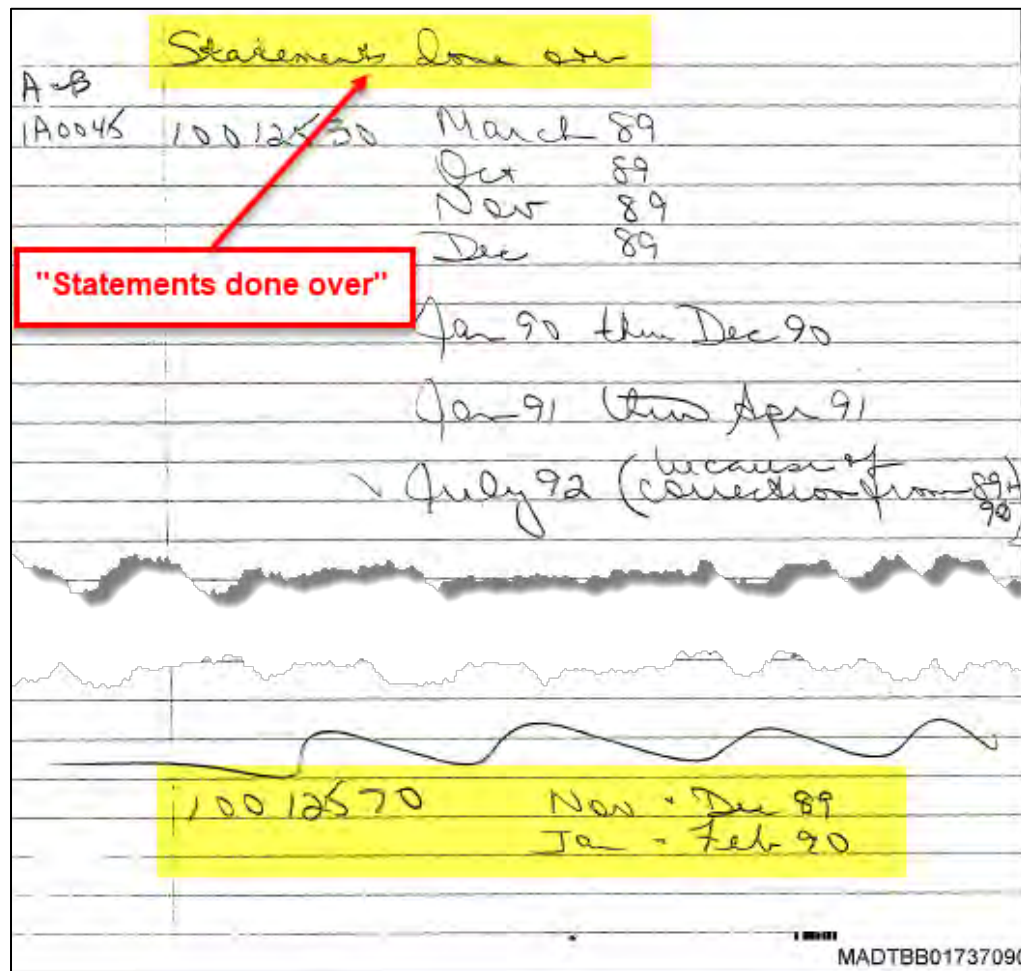 Statements done over
A-B
1A0045 10012530 March 89
Oct 89
Nov 89
Dec 89
"Statements done over"
Jan 90 thru Dec 90
Jan 91 thru Apr 91
July 92 (because of
correction from 89+
90
10012570 Nov - Dec 89
Jan - Feb 90
MADTBB01737090